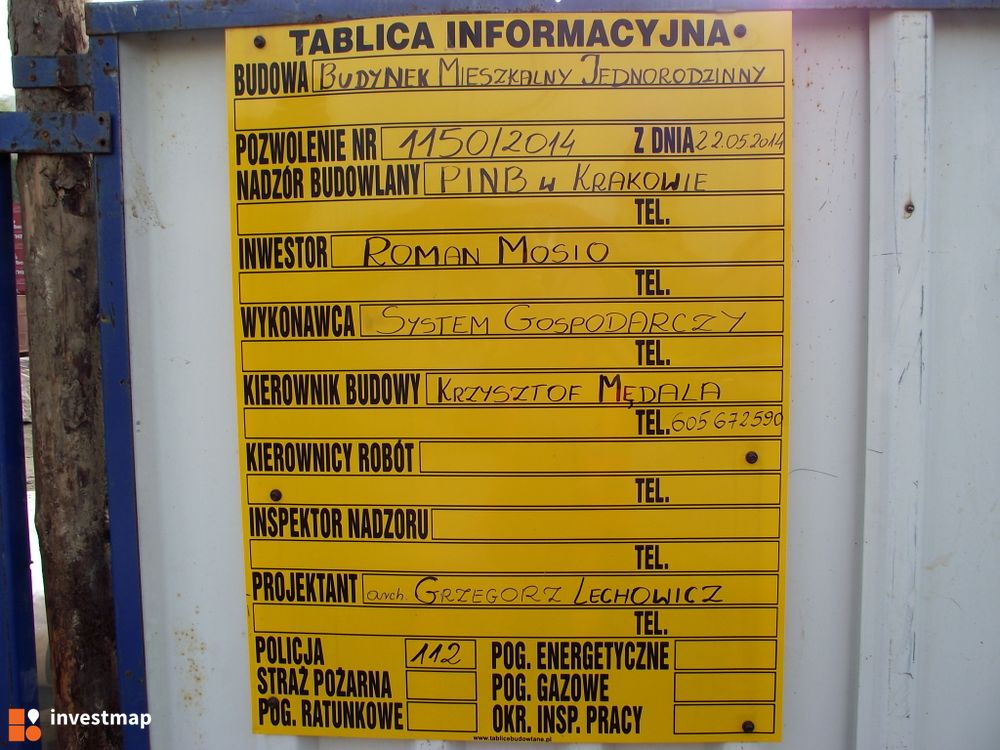 TABLICA INFORMACYJNA
BUDOWA BUDYNEK MIESZKALNY JEDNORODZINNY
POZWOLENIE NR 1150/2014 Z DNIA 22.05.2014
NADZÓR BUDOWLANY PINB W KRAKOWIE
TEL.
INWESTOR ROMAN MOSIO
TEL.
WYKONAWCA SYSTEM GOSPODARCZY
TEL.
KIEROWNIK BUDOWY KRZYSZTOF MĘDALA
TEL. 605 672590
KIEROWNICY ROBÓT
TEL.
INSPEKTOR NADZORU
TEL.
PROJEKTANT arch. GRZEGORZ LECHOWICZ
TEL.
POLICJA 112 POG. ENERGETYCZNE
STRAŻ POŻARNA POG. GAZOWE
POG. RATUNKOWE OKR. INSP. PRACY
www.tablicebudowlane.pl
investmap